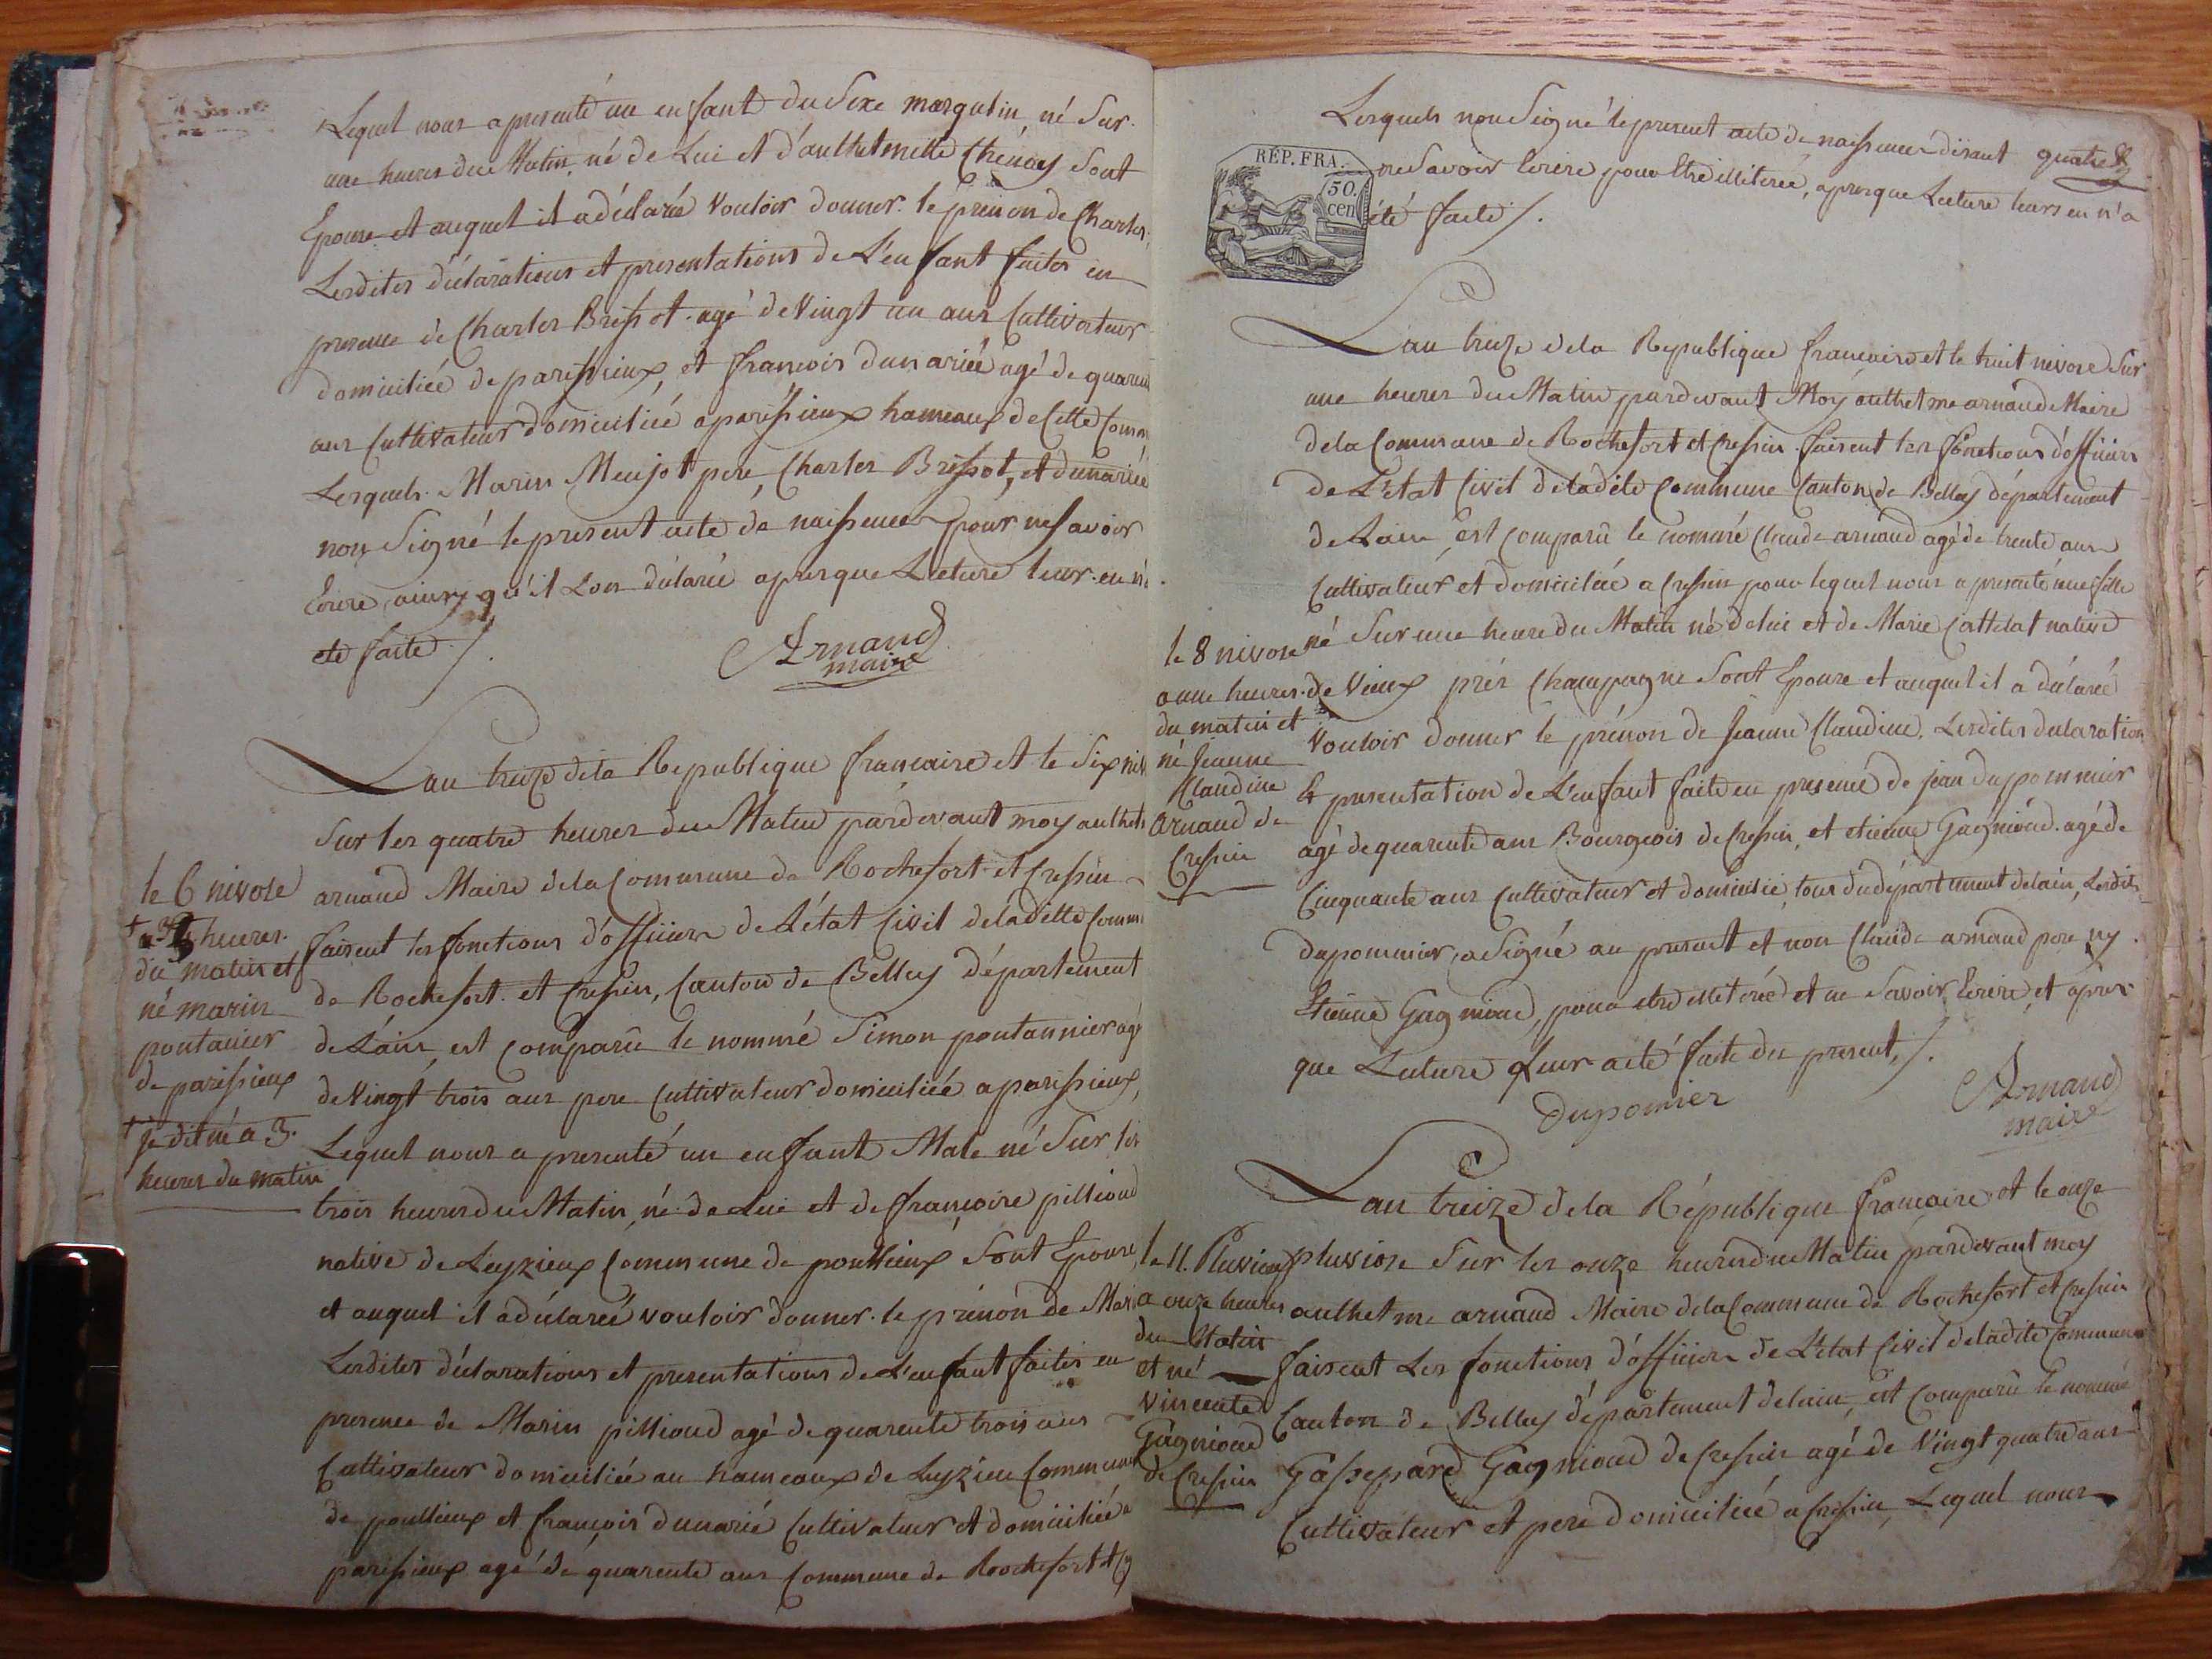 Lequel nous a presenté un enfant du Sexe masqulin né Sur
une heures du Matin, né de Lui et d'authelmette Chénoy Sont
Epouse et auquel il a déclaré vouloir donner le prénon de Charles,
Lesdites déclarations et presentations de L'enfant faites en
presence de Charles Bressot agé de Vingt un ans Cultivateur
domiciliée de parissieux, et françois dunariée agé de quaren
ans Cultivateur domiciliée a parissieux hameaux de Cette Comm
Lesquels Marin Meujot pere, Charles Bressot, et dunariée
non Signé le present acte de naissence pour ne savoir
Ecrire ainsy qu'il Lon déclarée apresque Lecture leur en n'a
eté faite /.
Arnaud
maire
Lan treize dela Republique francaise et le Six niv
Sur les quatre heures du Matin pardevant moy authel
le 6 nivose
arnaud Maire dela Commune de Rochefort et Cressin
† a 3 heures
faisent les fonctions d'officiers de L'état Civil deladitte Comm
du matin et
de Rochefort et Cressin, Canton de Belley département
né marin
pontanier
de L'ain, est comparu le nommé Simon pontannier agé
de parissieux
de Vingt trois ans pere Cultivateur domiciliée a parissieux,
† je dit né a 3.
Lequel nous a presenté un enfant Male né Sur les
heures du matin
trois heures du Matin, né de Lui et de françoise pillioud
native de Leyzieux Commune de poullieux Sont Epouse
et auquel il a déclarée vouloir donner le prénon de Mari
Lesdites déclarations et presentations de L'enfant faites en
presence de Marin pillioud agé de quarente trois ans
Cultivateur domiciliée au hameaux de Luyzieu Commune
de poullieux et françois dunarié Cultivateur et domiciliée a
parissieux agé de quarente ans Commune de Rochefort et
Lesquels non Signé le present acte de naissence disant
quatre
RÉP. FRA.
50.
cen
ne Savoir Ecrire pour Etre illiterée, apresque Lecture leurs en n'a
été faite /.
Lan treize dela Republique francaise et le huit nivose Sur
une heures du Matin pardevant Moy authelme arnaud Maire
dela Commune de Rochefort et Cressin faisent les fonctions d'officiers
de L'etat Civil deladite Commune Canton de Belley département
de Lain, est comparu le nommé Claude arnaud agé de trente ans
Cultivateur et domiciliée a Cressin pour lequel nous a presenté une fille
le 8 nivose
né Sur une heure du Matin né de lui et de Marie Cattelat native
a une heures
de Vieux prés Champagne Sont Epouse et auquel il a déclaré
du matin et
né Jeanne
vouloir donner le prénon de Jeanne Claudine. Lesdites declaration
Claudine
Arnaud de
Cressin
et presentation de L'enfant faite en presence de jean dupommier
agé de quarente ans Bourgeois de Cressin, et etienne Gagnioud agé de
Cinquante ans Cultivateur et domicilié, tous du département delain, Lesdits
dupommier, a Signé au present et non Claude arnaud pere ny
Etienne Gagnioud, pour etre illeterée et ne Savoir Ecrire, et apres
que Lecture leur a eté faite du present, /.
Dupomier
Arnaud
maire
Lan treize dela République francaise et le onze
le 11. Pluviose
pluviose Sur les onze heures du Matin pardevant moy
a onze heures
authelme arnaud Maire dela Commune de Rochefort et Cressin
du Matin
et né
faisent Les fonctions d'officiers de L'etat Civil deladite Commune
Vincente
Canton de Belley département delain, est comparu le nommé
Gagnioud
de Cressin
Gassepard Gagnioud de Cressin agé de Vingt quatre ans
Cultivateur et pere domiciliée a Cressin, Lequel nous